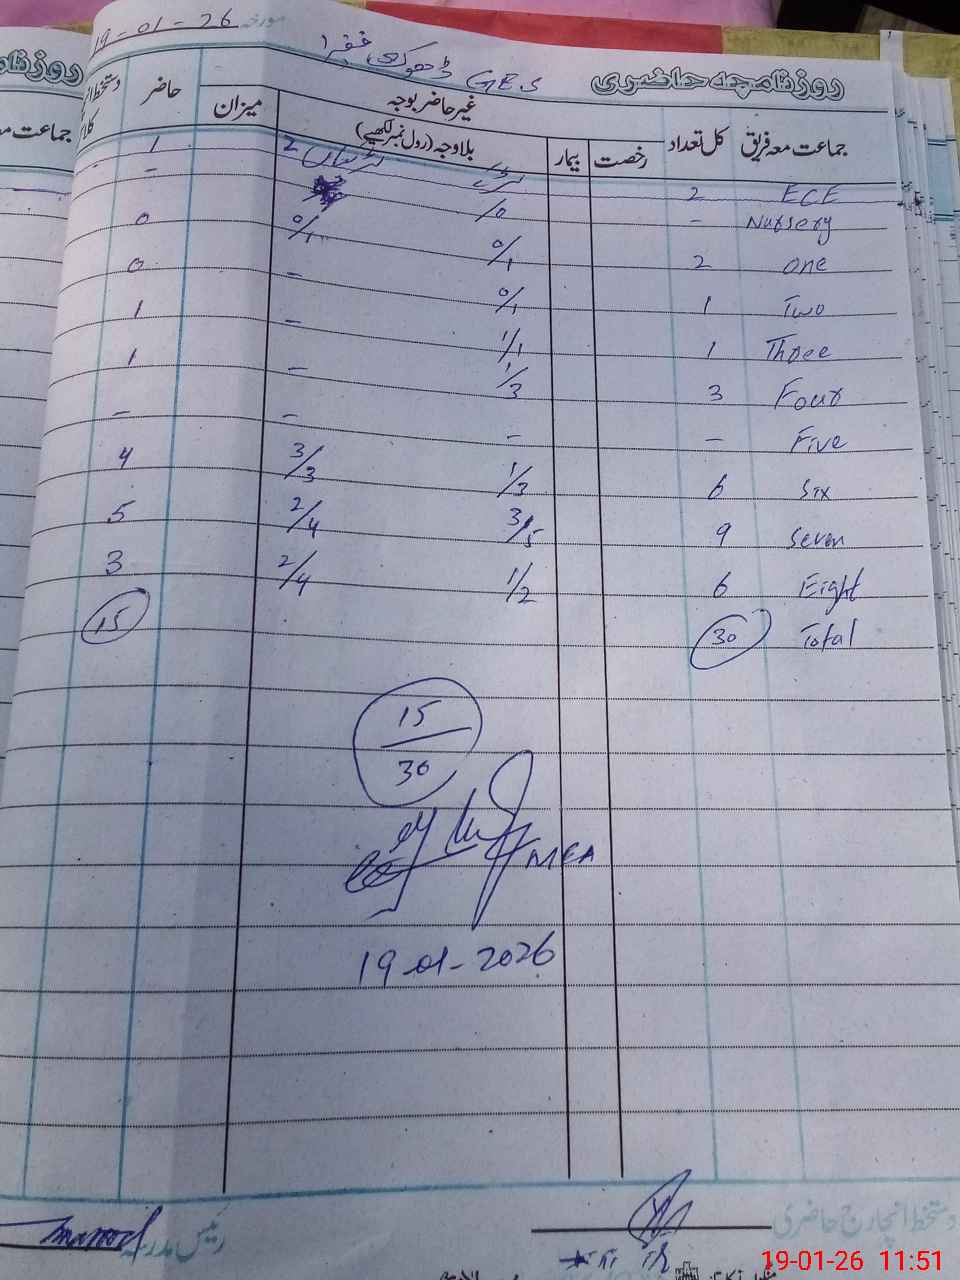 مورخہ 19-01-26
روزنامچہ حاضری GES ڈھوک فقیرا
جماعت معہ فریق کل تعداد رخصت بیمار غیر حاضر بوجہ میزان حاضر
بلاوجہ (رول نمبر لکھیے)
ECE 2 2 1
Nursery - 1/0 -
one 2 0/1 0/1 0
Two 1 0/1 - 0
Three 1 1/1 - 1
Four 3 1/3 - 1
Five - - - -
Six 6 1/3 3/3 4
Seven 9 3/5 2/4 5
Eight 6 1/2 2/4 3
Total 30 15
15
30
MEA
19-01-2026
دستخط انچارج حاضری
رئیس مدرسہ
19-01-26 11:51